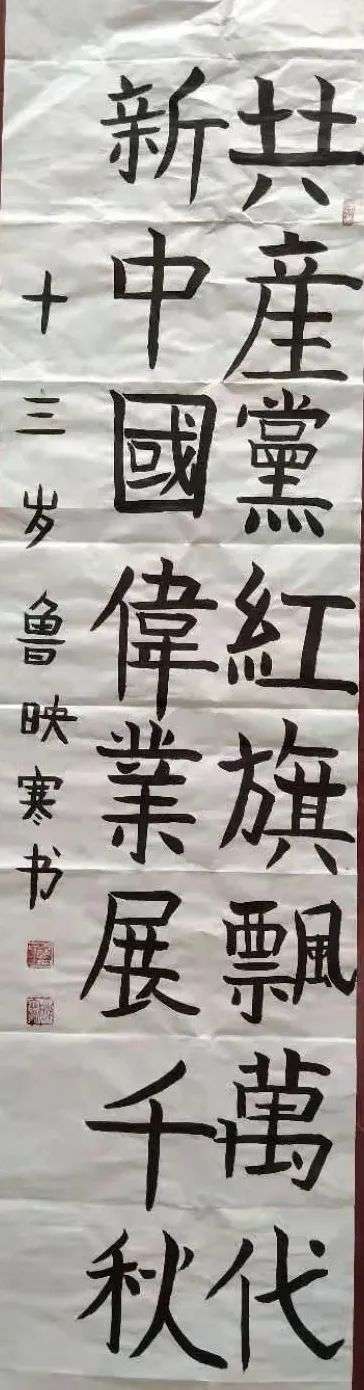 共産黨紅旗飄萬代
新中國偉業展千秋
十三岁鲁映寒书